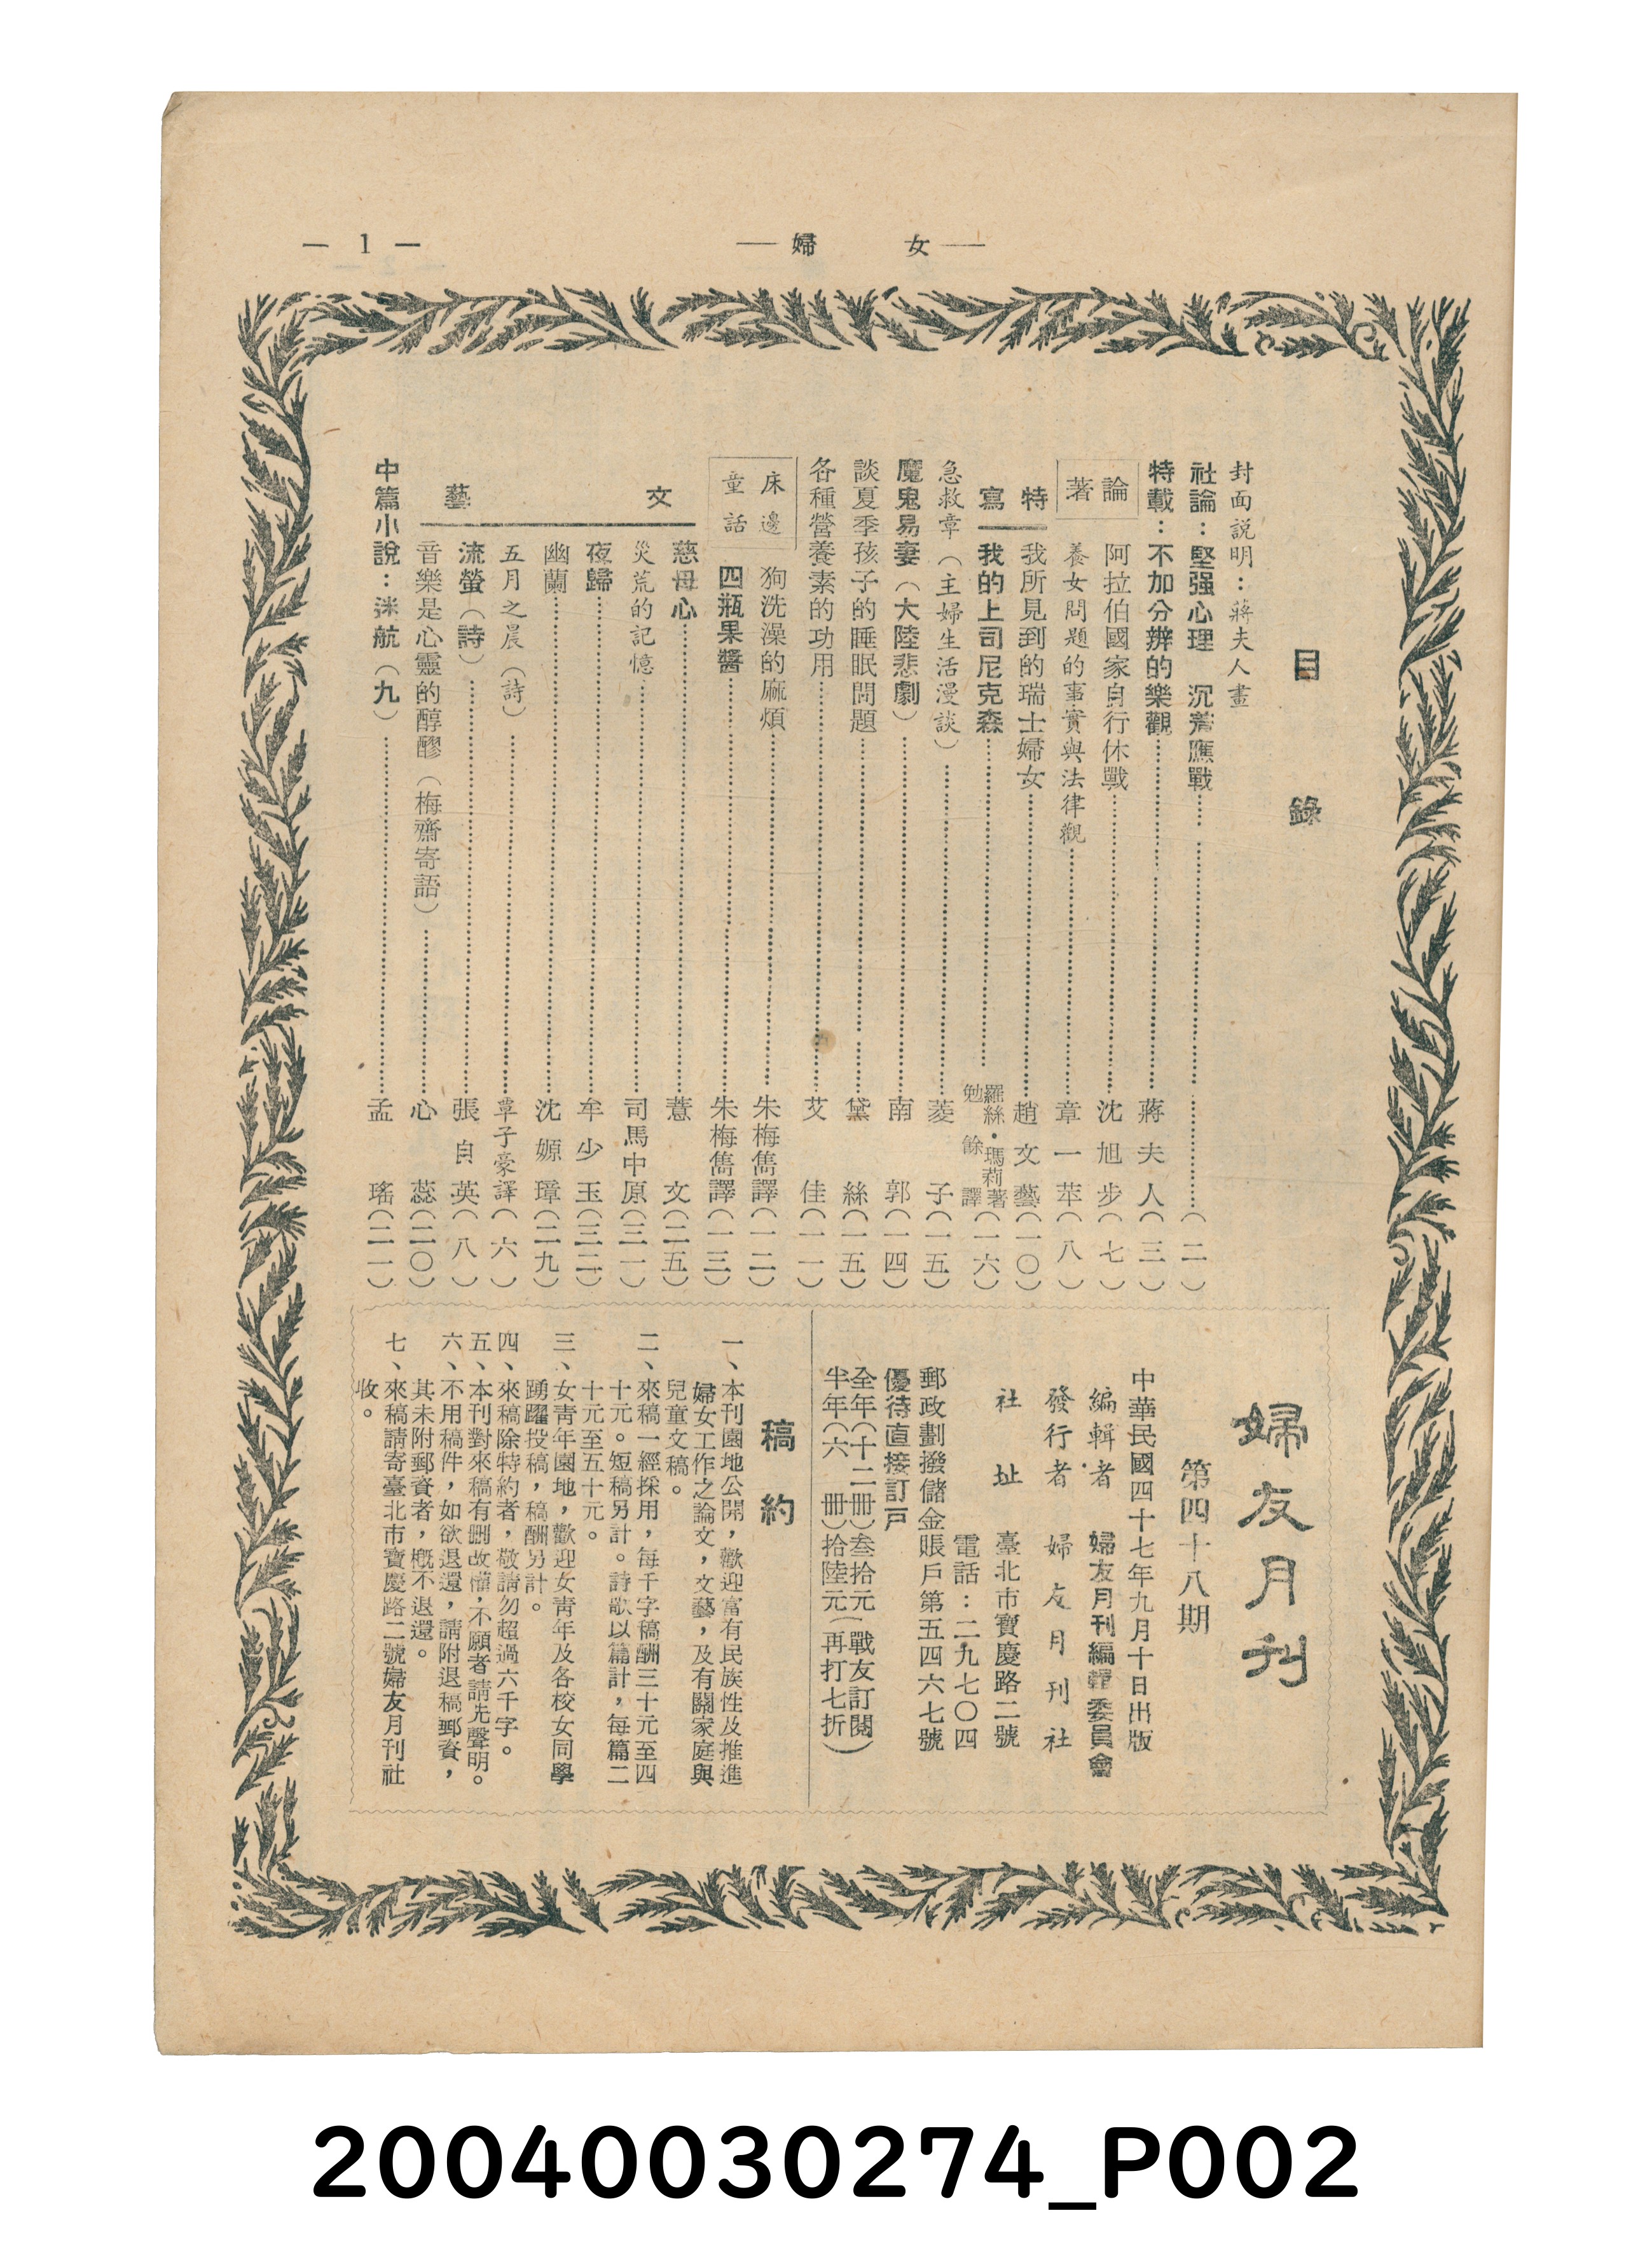 — 1 —
—婦 女—
目 錄
封面説明：蔣夫人畫
社論：堅强心理 沉着應戰……（二）
特載：不加分辨的樂觀……蔣夫人（三）
論著
阿拉伯國家自行休戰……沈旭步（七）
養女問題的事實與法律觀……章一苹（八）
特寫
我所見到的瑞士婦女……趙文藝（一〇）
我的上司尼克森……羅絲·瑪莉著 勉餘譯（一六）
急救章（主婦生活漫談）……菱子（一五）
魔鬼易妻（大陸悲劇）……南郭（一四）
談夏季孩子的睡眠問題……黛絲（一五）
各種營養素的功用……艾佳（一一）
床邊童話
狗洗澡的麻煩……朱梅雋譯（一二）
四瓶果醬……朱梅雋譯（一三）
文藝
慈母心……薏文（二五）
災荒的記憶……司馬中原（三一）
夜歸……牟少玉（三二）
幽蘭……沈嫄璋（二九）
五月之晨（詩）……覃子豪譯（六）
流螢（詩）……張自英（八）
音樂是心靈的醇醪（梅齋寄語）……心蕊（二〇）
中篇小說：迷航（九）……孟瑤（二一）
婦友月刊
第四十八期
中華民國四十七年九月十日出版
編輯者 婦友月刊編輯委員會
發行者 婦友月刊社
社址 臺北市寶慶路二號
電話：二九七〇四
郵政劃撥儲金賬戶第五四六七號
優待直接訂戶
全年（十二冊）叁拾元（戰友訂閱
半年（六 冊）拾陸元（再打七折）
稿約
一、本刊園地公開，歡迎富有民族性及推進
婦女工作之論文，文藝，及有關家庭與
兒童文稿。
二、來稿一經採用，每千字稿酬三十元至四
十元。短稿另計。詩歌以篇計，每篇二
十元至五十元。
三、女青年園地，歡迎女青年及各校女同學
踴躍投稿，稿酬另計。
四、來稿除特約者，敬請勿超過六千字。
五、本刊對來稿有刪改權，不願者請先聲明。
六、不用稿件，如欲退還，請附退稿郵資，
其未附郵資者，概不退還。
七、來稿請寄臺北市寶慶路二號婦友月刊社
收。
20040030274_P002